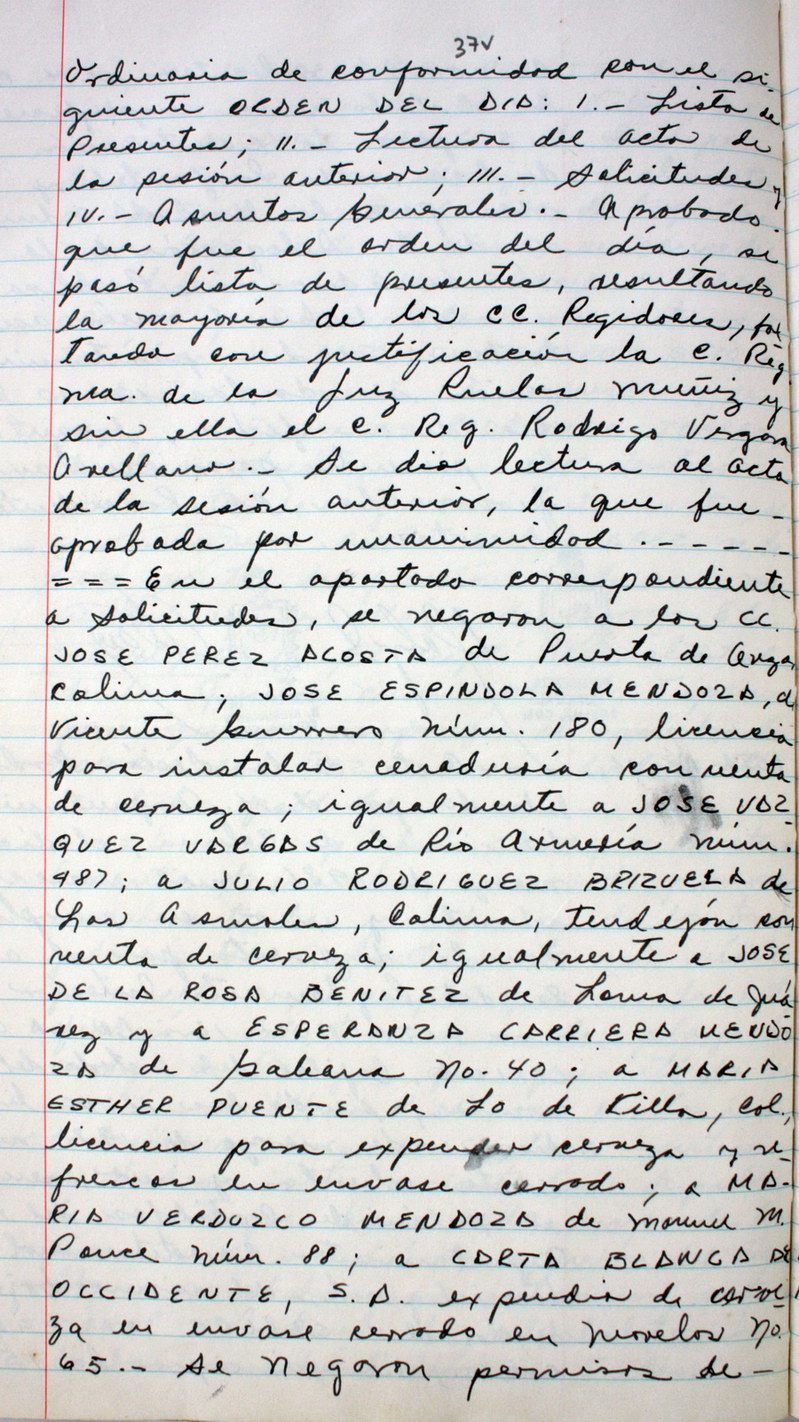 37v
Ordinaria de conformidad con el si-
guiente ORDEN DEL DIA: I.- Lista de
Presentes; II.- Lectura del acta de
la sesión anterior; III.- Solicitudes y
IV.- Asuntos Generales.- Aprobado
que fue el orden del día, se
pasó lista de presentes, resultando
la mayoría de los CC. Regidores, fal-
tando con justificación la C. Reg.
Ma. de la Luz Ruelas Muñiz y
sin ella el C. Reg. Rodrigo Vergara
Arellano.- Se dio lectura al acta
de la sesión anterior, la que fue -
aprobada por unanimidad.- - - - -
= = = En el apartado correspondiente
a solicitudes, se negaron a los CC.
JOSE PEREZ ACOSTA de Puerta de Anzar
Colima; JOSE ESPINDOLA MENDOZA, de
Vicente Guerrero Núm. 180, licencia
para instalar cenaduría con venta
de cerveza; igualmente a JOSE VAZ-
QUEZ VARGAS de Río Armería núm.
987; a JULIO RODRIGUEZ BRIZUELA de
Los Asmoles, Colima, tendejón con
venta de cerveza; igualmente a JOSE
DE LA ROSA BENITEZ de Loma de Juá-
rez y a ESPERANZA CARRIERA MENDO
ZA de Galeana No. 40; a MARIA
ESTHER PUENTE de Lo de Villa, Col.,
licencia para expender cerveza y re-
frescos en envase cerrado; a MA-
RIA VERDUZCO MENDOZA de Manuel M.
Ponce núm. 88; a CARTA BLANCA DE
OCCIDENTE, S.A. expendio de cerve-
za en envase cerrado en Morelos No.
65.- Se negaron permisos de -